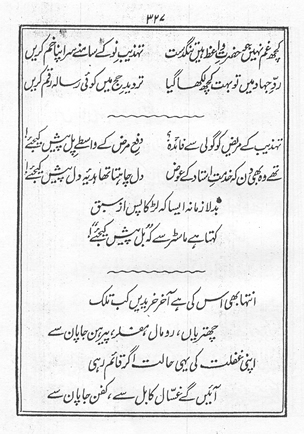 ۳۲۷
کچھ غم نہیں جو حضرتِ واعظ ہیں تنگدست
تہذیبِ نو کے سامنے سر اپنا خم کریں
ردِّ جہاد میں تو بہت کچھ لکھا گیا
تردیدِ حج میں کوئی رسالہ رقم کریں
تہذیب کے مریض کو گولی سے فائدہ؟
دفعِ مرض کے واسطے پِل پیش کیجئے!
تھے وہ بھی دن کہ خدمتِ استاد کے عوض
دل چاہتا تھا ہدیۂ دل پیش کیجئے!
بدلا زمانہ ایسا کہ لڑکا پس از سبق
کہتا ہے ماسٹر سے کہ ”بِل پیش کیجئے“!
انتہا بھی اس کی ہے آخر خریدیں کب تلک
چھتریاں، رومال، مفلر، پیرہن جاپان سے
اپنی غفلت کی یہی حالت اگر قائم رہی
آئیں گے غسّال کابل سے، کفن جاپان سے